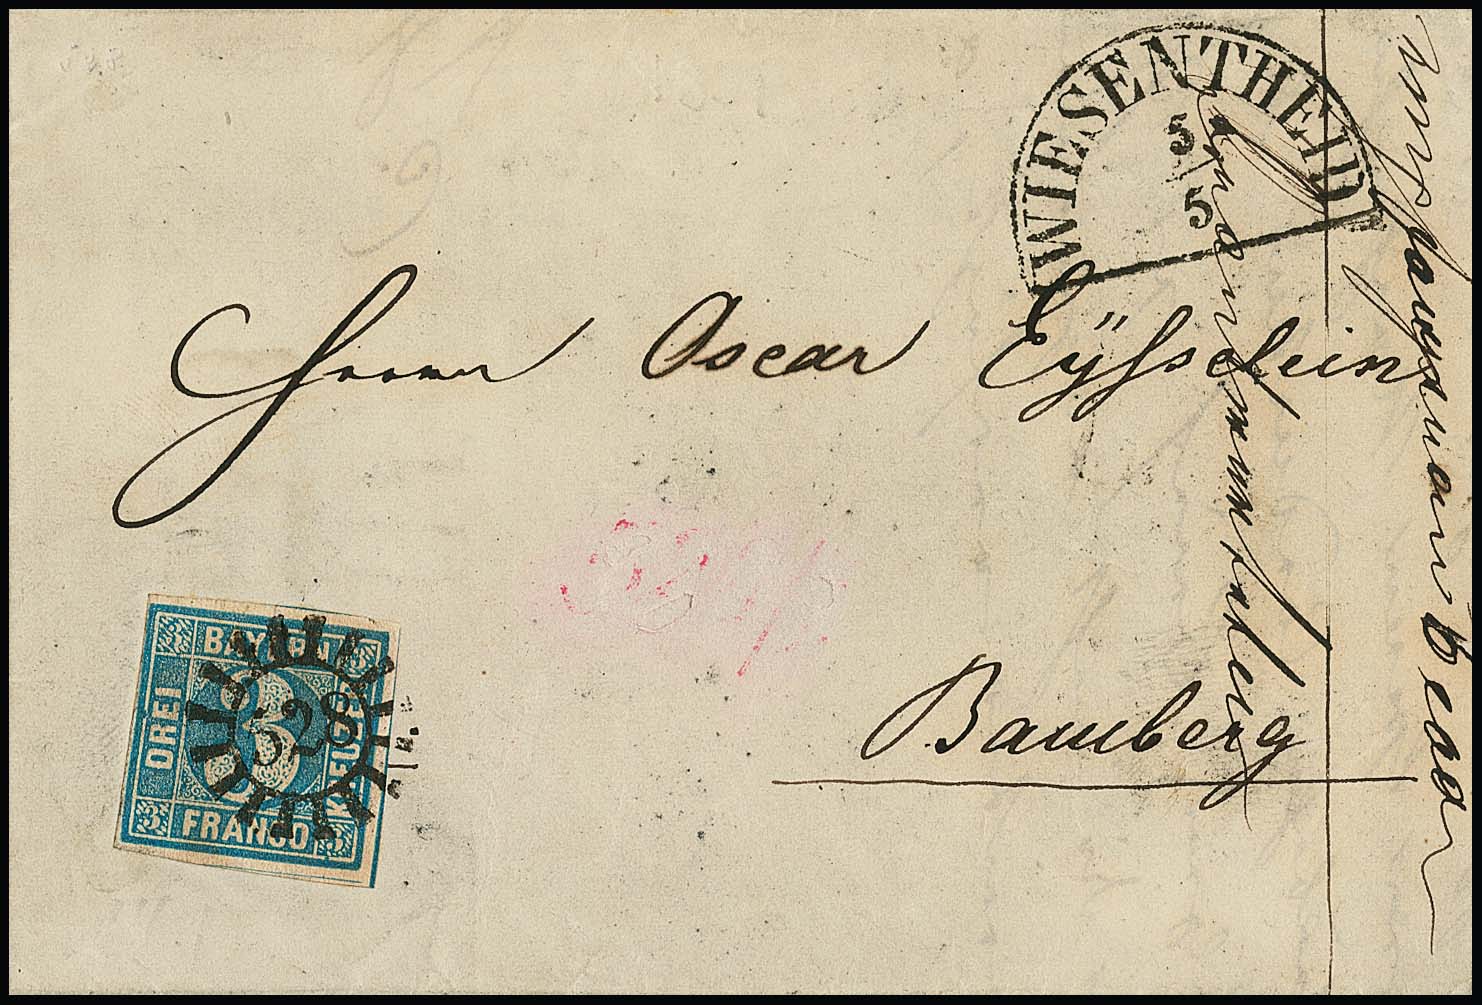 WIESENTHEID
5
5
Herrn Oscar Eÿsselein
Bamberg
3 BAYERN 3
DREI 3 KREUZER
3 FRANCO 3
528